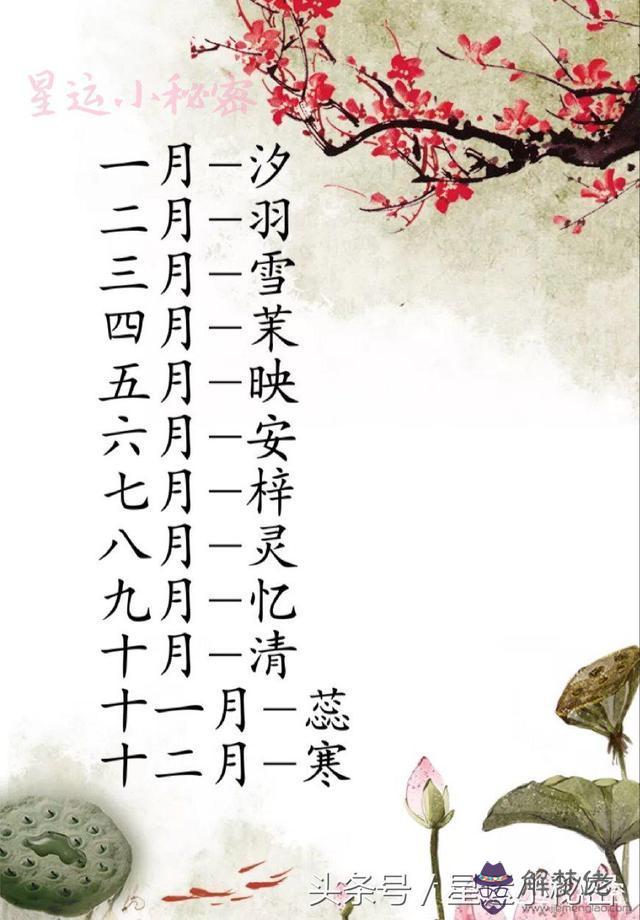 星运小秘密
一月－汐
二月－羽
三月－雪
四月－茉
五月－映
六月－安
七月－梓
八月－灵
九月－忆
十月－清
十一月－蕊
十二月－寒
头条号/星运小秘密
解梦佬
www.jiemenglao.com